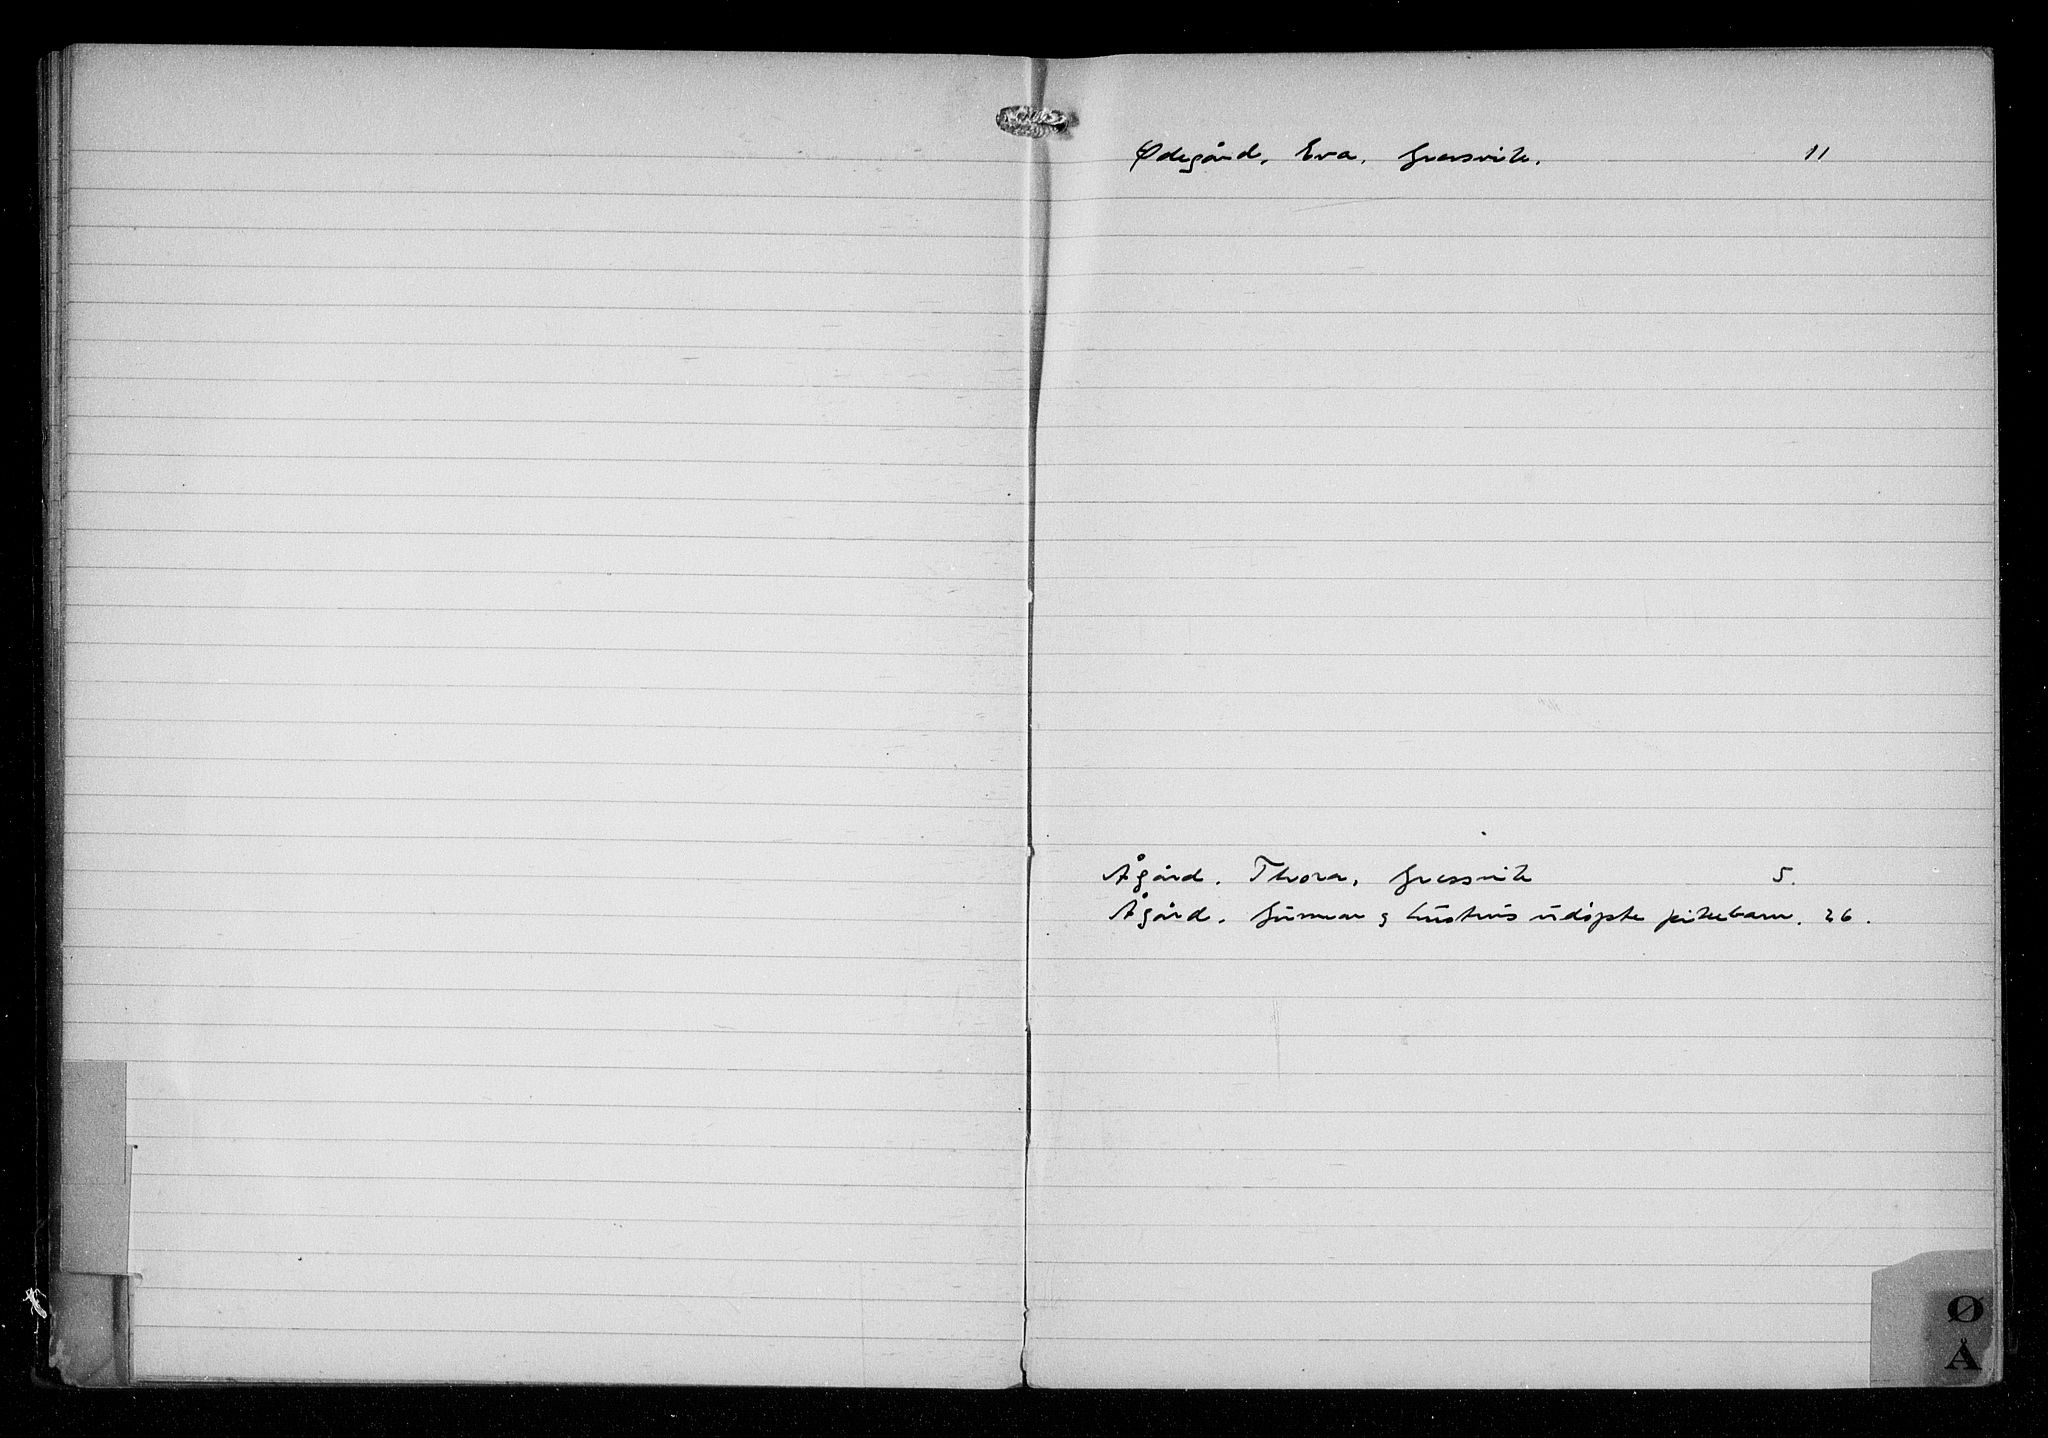 Ødegård, Eva, Gressvik. 11
Ågård. Thora, Gressvik 5.
Ågård. Gunnar og hustrus udøpte pikebarn. 26.
Ø
Å